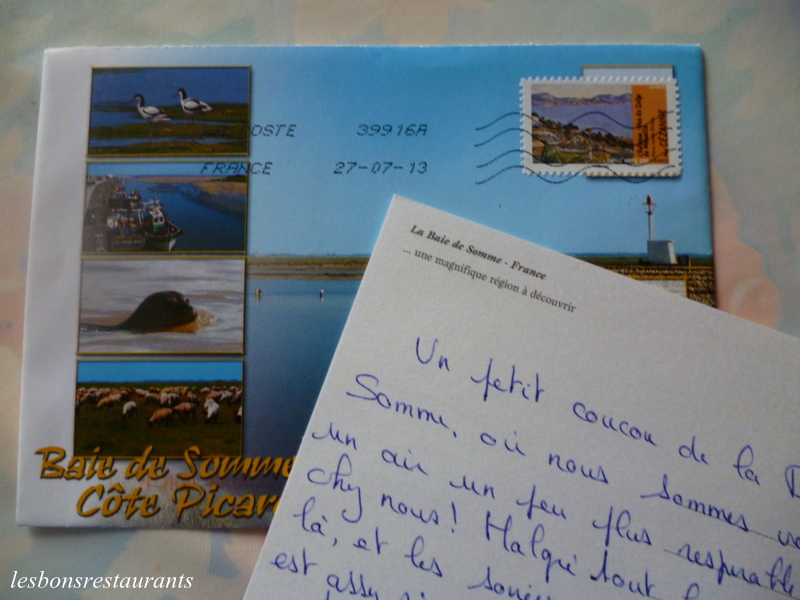 LA POSTE 39916A
FRANCE 27-07-13
CÉZANNE
Baie de Somme
Côte Picar
La Baie de Somme - France
... une magnifique région à découvrir
Un petit coucou de la B
Somme, où nous sommes ve
un air un peu plus respirable
chez nous ! Malgré tout l
là, et les
est assez
lesbonsrestaurants